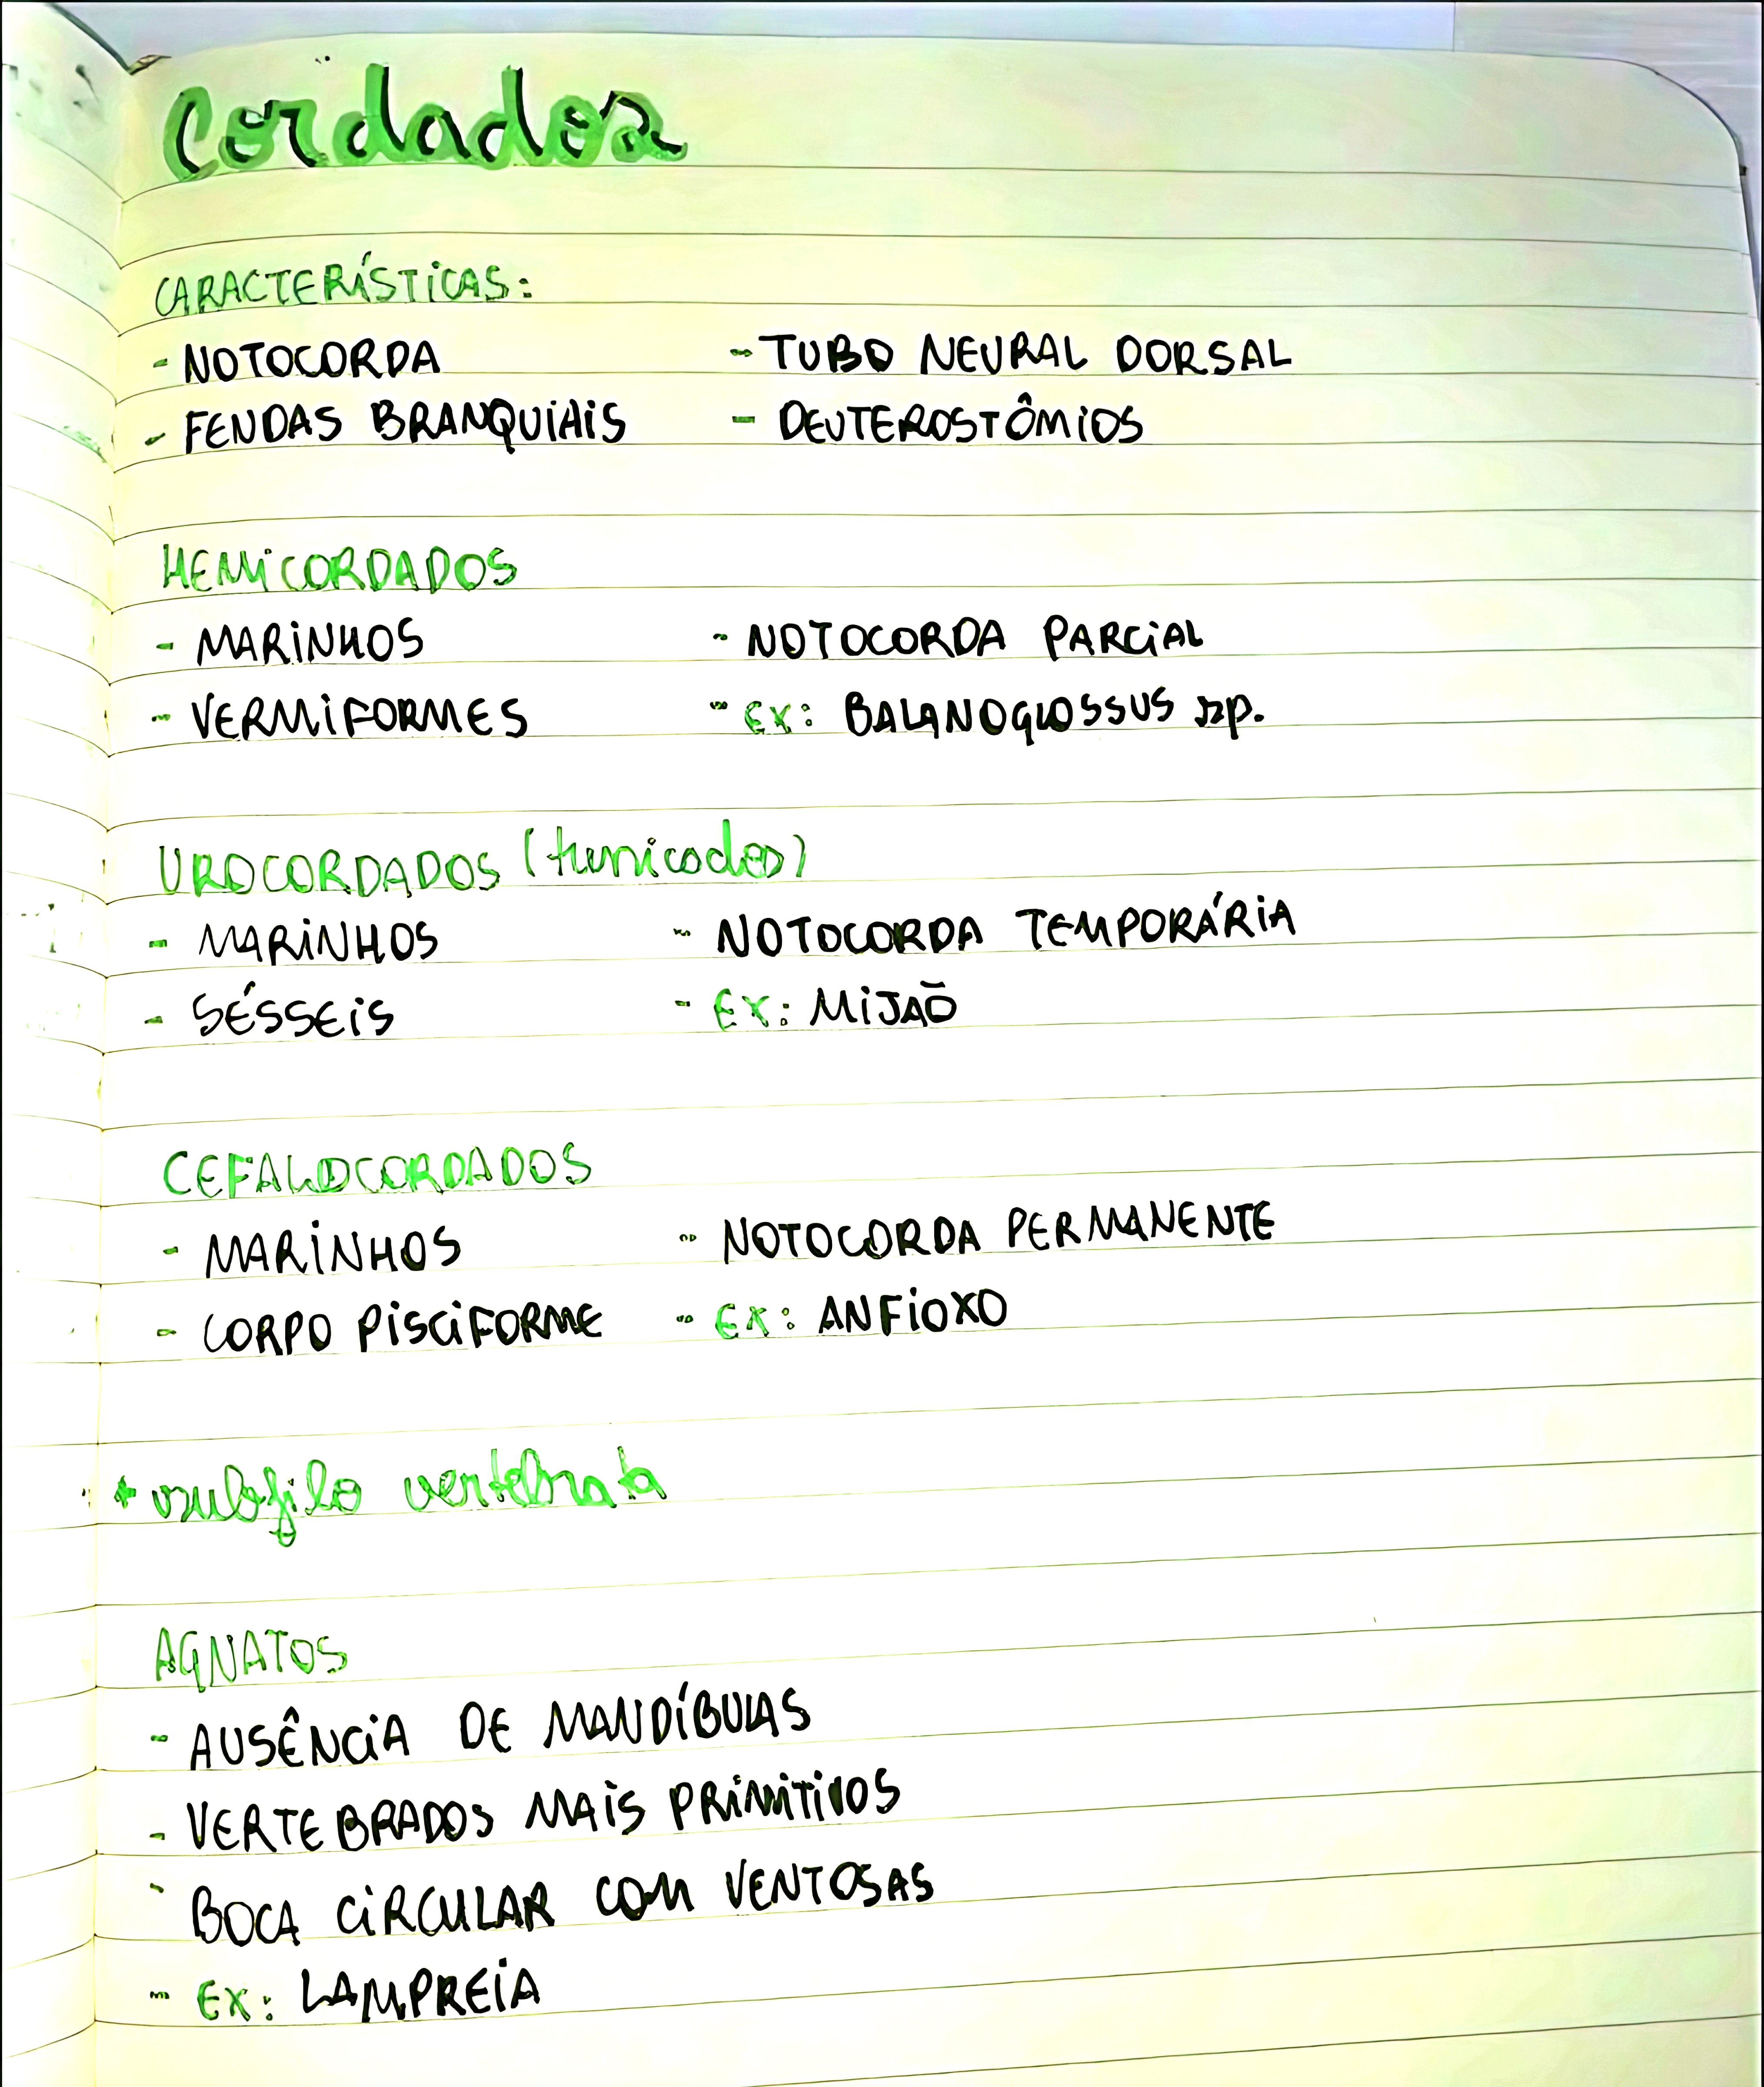 Cordados
CARACTERÍSTICAS:
- NOTOCORDA - TUBO NEURAL DORSAL
- FENDAS BRANQUIAIS - DEUTEROSTÔMIOS
HEMICORDADOS
- MARINHOS - NOTOCORDA PARCIAL
- VERMIFORMES - EX: BALANOGLOSSUS sp.
UROCORDADOS (tunicados)
- MARINHOS - NOTOCORDA TEMPORÁRIA
- SÉSSEIS - EX: MIJÃO
CEFALOCORDADOS
- MARINHOS - NOTOCORDA PERMANENTE
- CORPO PISCIFORME - EX: ANFIOXO
+ subfilo vertebrata
AGNATOS
- AUSÊNCIA DE MANDÍBULAS
- VERTEBRADOS MAIS PRIMITIVOS
- BOCA CIRCULAR COM VENTOSAS
- EX: LAMPREIA